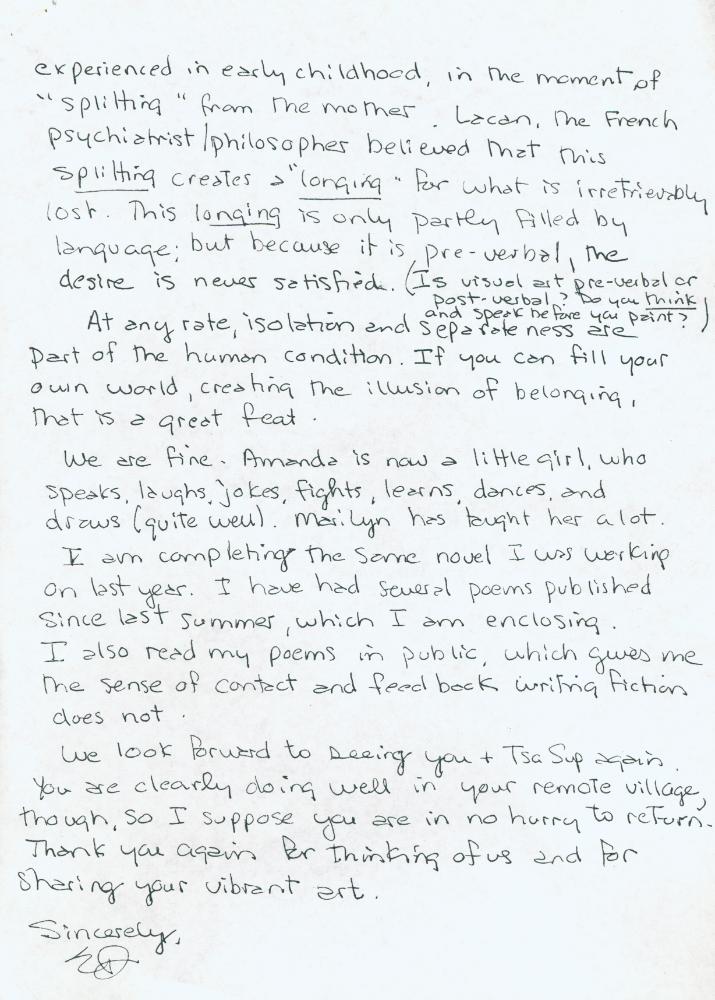 experienced in early childhood, in the moment of
"splitting" from the mother. Lacan, the French
psychiatrist/philosopher believed that this
splitting creates a "longing" for what is irretrievably
lost. This longing is only partly filled by
language; but because it is pre-verbal, the
desire is never satisfied. (Is visual art pre-verbal or
post-verbal? Do you think
and speak before you paint?)
At any rate, isolation and separateness are
part of the human condition. If you can fill your
own world, creating the illusion of belonging,
that is a great feat.
We are fine. Amanda is now a little girl, who
speaks, laughs, jokes, fights, learns, dances, and
draws (quite well). Marilyn has taught her a lot.
I am completing the same novel I was working
on last year. I have had several poems published
since last summer, which I am enclosing.
I also read my poems in public, which gives me
the sense of contact and feedback writing fiction
does not.
We look forward to seeing you + Tsa Sup again.
You are clearly doing well in your remote village,
though, so I suppose you are in no hurry to return.
Thank you again for thinking of us and for
sharing your vibrant art.
Sincerely,